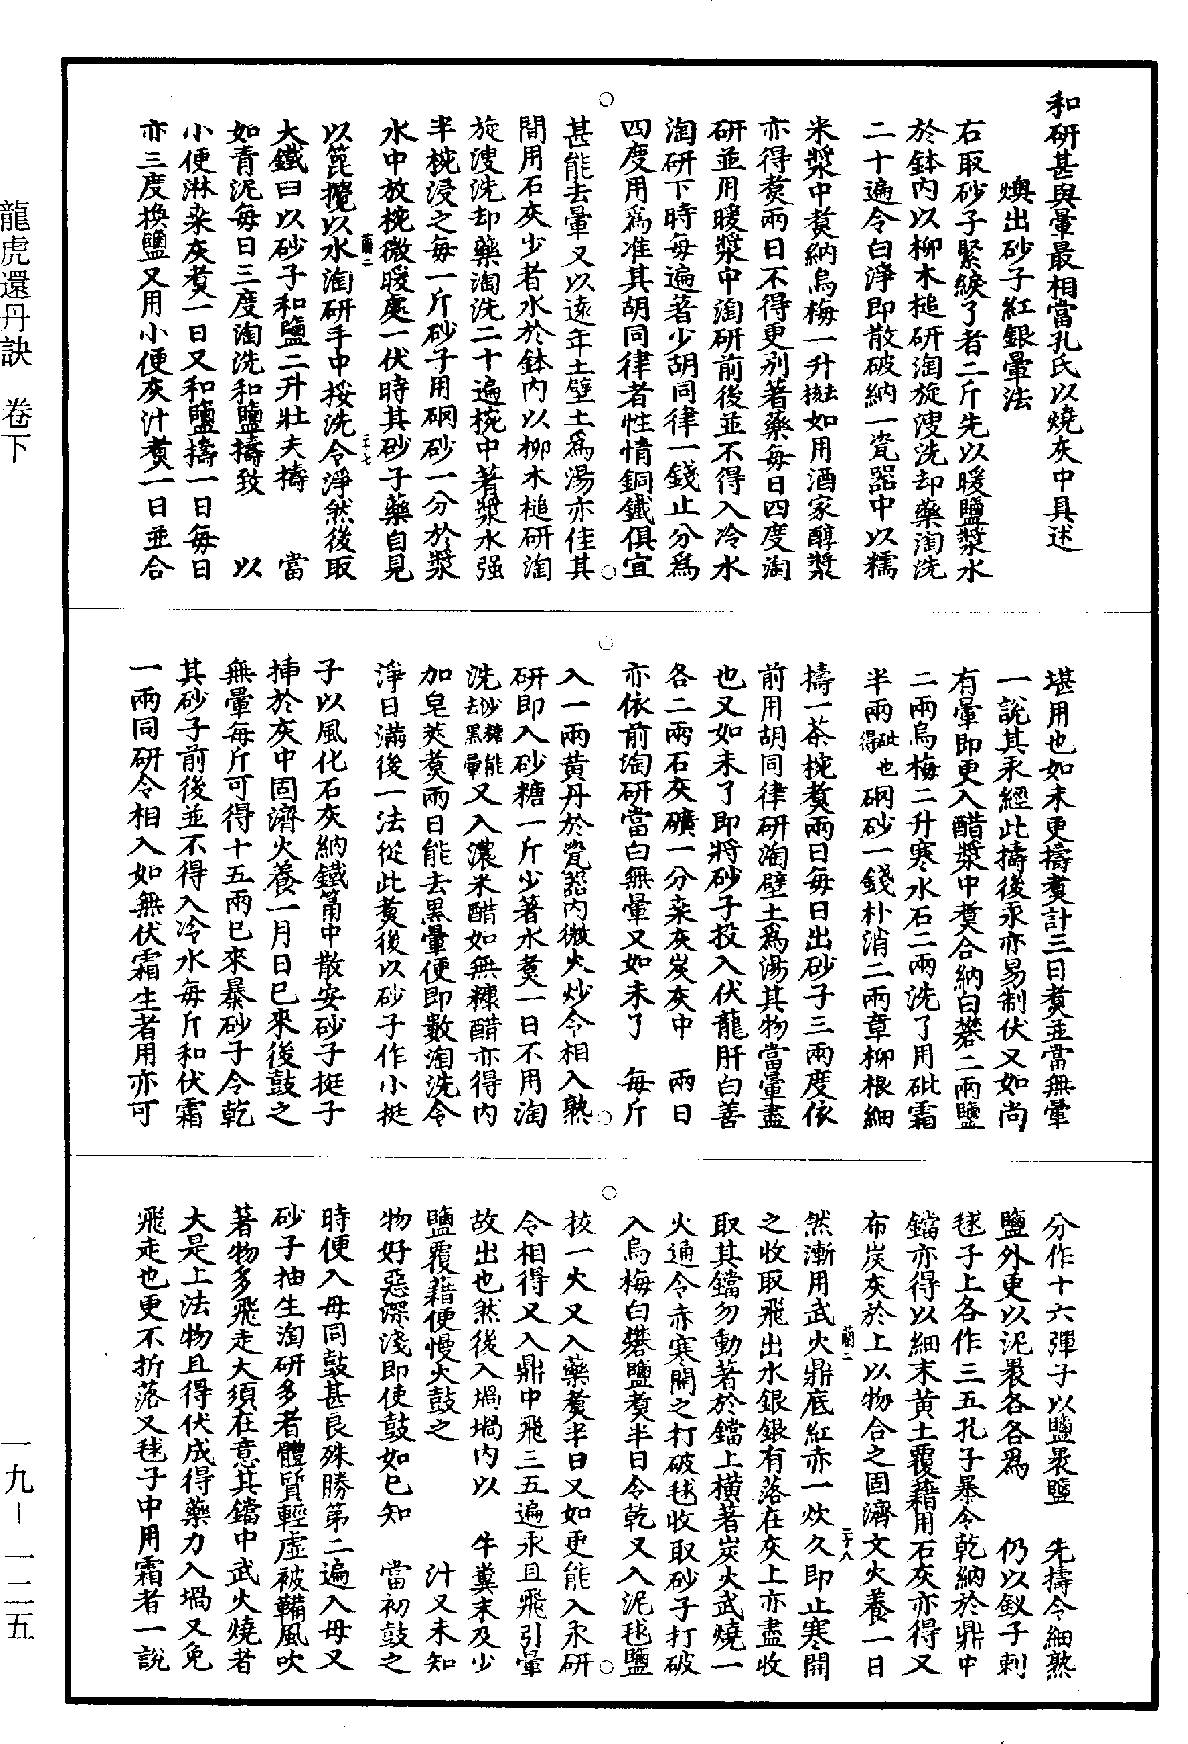 和研甚與暈最相當孔氏以燒灰中具述
燠出砂子紅銀暈法
右取砂子緊緩了者二斤先以暖鹽漿水
於鉢內以柳木槌研淘旋溲洗却藥淘洗
二十遍令白淨即散破納一瓷器中以糯
米漿中煑納烏梅一升槌去如用酒家醇漿
亦得煑兩日不得更別著藥每日四度淘
研並用暖漿中淘研前後並不得入冷水
淘研下時每遍著少胡同律一錢止分為
四度用為准其胡同律者性情銅鐵俱宜
甚能去暈又以遠年土壁土為湯亦佳其
間用石灰少者水於鉢內以柳木槌研淘
旋溲洗却藥淘洗二十遍椀中著漿水强
半椀浸之每一斤砂子用硇砂一分於漿
水中放椀微暖處一伏時其砂子藥自見
以篦攪以水淘研手中挼洗令淨然後取
大鐵臼以砂子和鹽二升壯夫擣 當
如青泥每日三度淘洗和鹽擣致 以
小便淋桑灰煑一日又和鹽擣一日每日
亦三度換鹽又用小便灰汁煑一日並合
堪用也如未更擣煑計三日煑並當無暈
一說其汞經此擣後汞亦易制伏又如尚
有暈即更入醋漿中煑合納白礬二兩鹽
二兩烏梅二升寒水石二兩洗了用砒霜
半兩砒也得硇砂一錢朴消二兩章柳根細
擣一茶椀煑兩日每日出砂子三兩度依
前用胡同律研淘壁土為湯其物當暈盡
也又如未了即將砂子投入伏龍肝白善
各二兩石灰礦一分桑灰炭灰中 兩日
亦依前淘研當白無暈又如未了 每斤
入一兩黃丹於瓷器內微火炒令相入熟
研即入砂糖一斤少著水煑一日不用淘
洗沙糖能去黑暈又入濃米醋如無糠醋亦得內
加皂莢煑兩日能去黑暈便即數淘洗令
淨日滿後一法從此煑後以砂子作小挺
子以風化石灰納鐵筩中散安砂子挺子
揷於灰中固濟火養一月日已來後鼓之
無暈每斤可得十五兩已來暴砂子令乾
其砂子前後並不得入冷水每斤和伏霜
一兩同研令相入如無伏霜生者用亦可
分作十六彈子以鹽褁鹽 先擣令細熟
鹽外更以泥褁各各為 仍以釵子刺
毬子上各作三五孔子暴令乾納於鼎中
鐺亦得以細末黃土覆藉用石灰亦得又
布炭灰於上以物合之固濟文火養一日
然漸用武火鼎底紅亦一炊久即止寒開
之收取飛出水銀銀有落在灰上亦盡收
取其鐺勿動著於鐺上橫著炭火武燒一
火通令赤寒開之打破毬收取砂子打破
入烏梅白礬鹽煑半日令乾又入泥毬鹽
拔一火又入藥煑半日又如更能入汞研
令相得又入鼎中飛三五遍汞且飛引暈
故出也然後入堝堝內以 牛糞末及少
鹽覆藉便慢火鼓之 汁又未知
物好惡深淺即使鼓如已知 當初鼓之
時便入母同鼓甚良殊勝第二遍入母又
砂子抽生淘研多者體質輕虛被鞴風吹
著物多飛走大須在意其鐺中武火燒者
大是上法物且得伏成得藥力入堝又免
飛走也更不折落又毬子中用霜者一說
龍虎還丹訣 卷下
一九－一二五